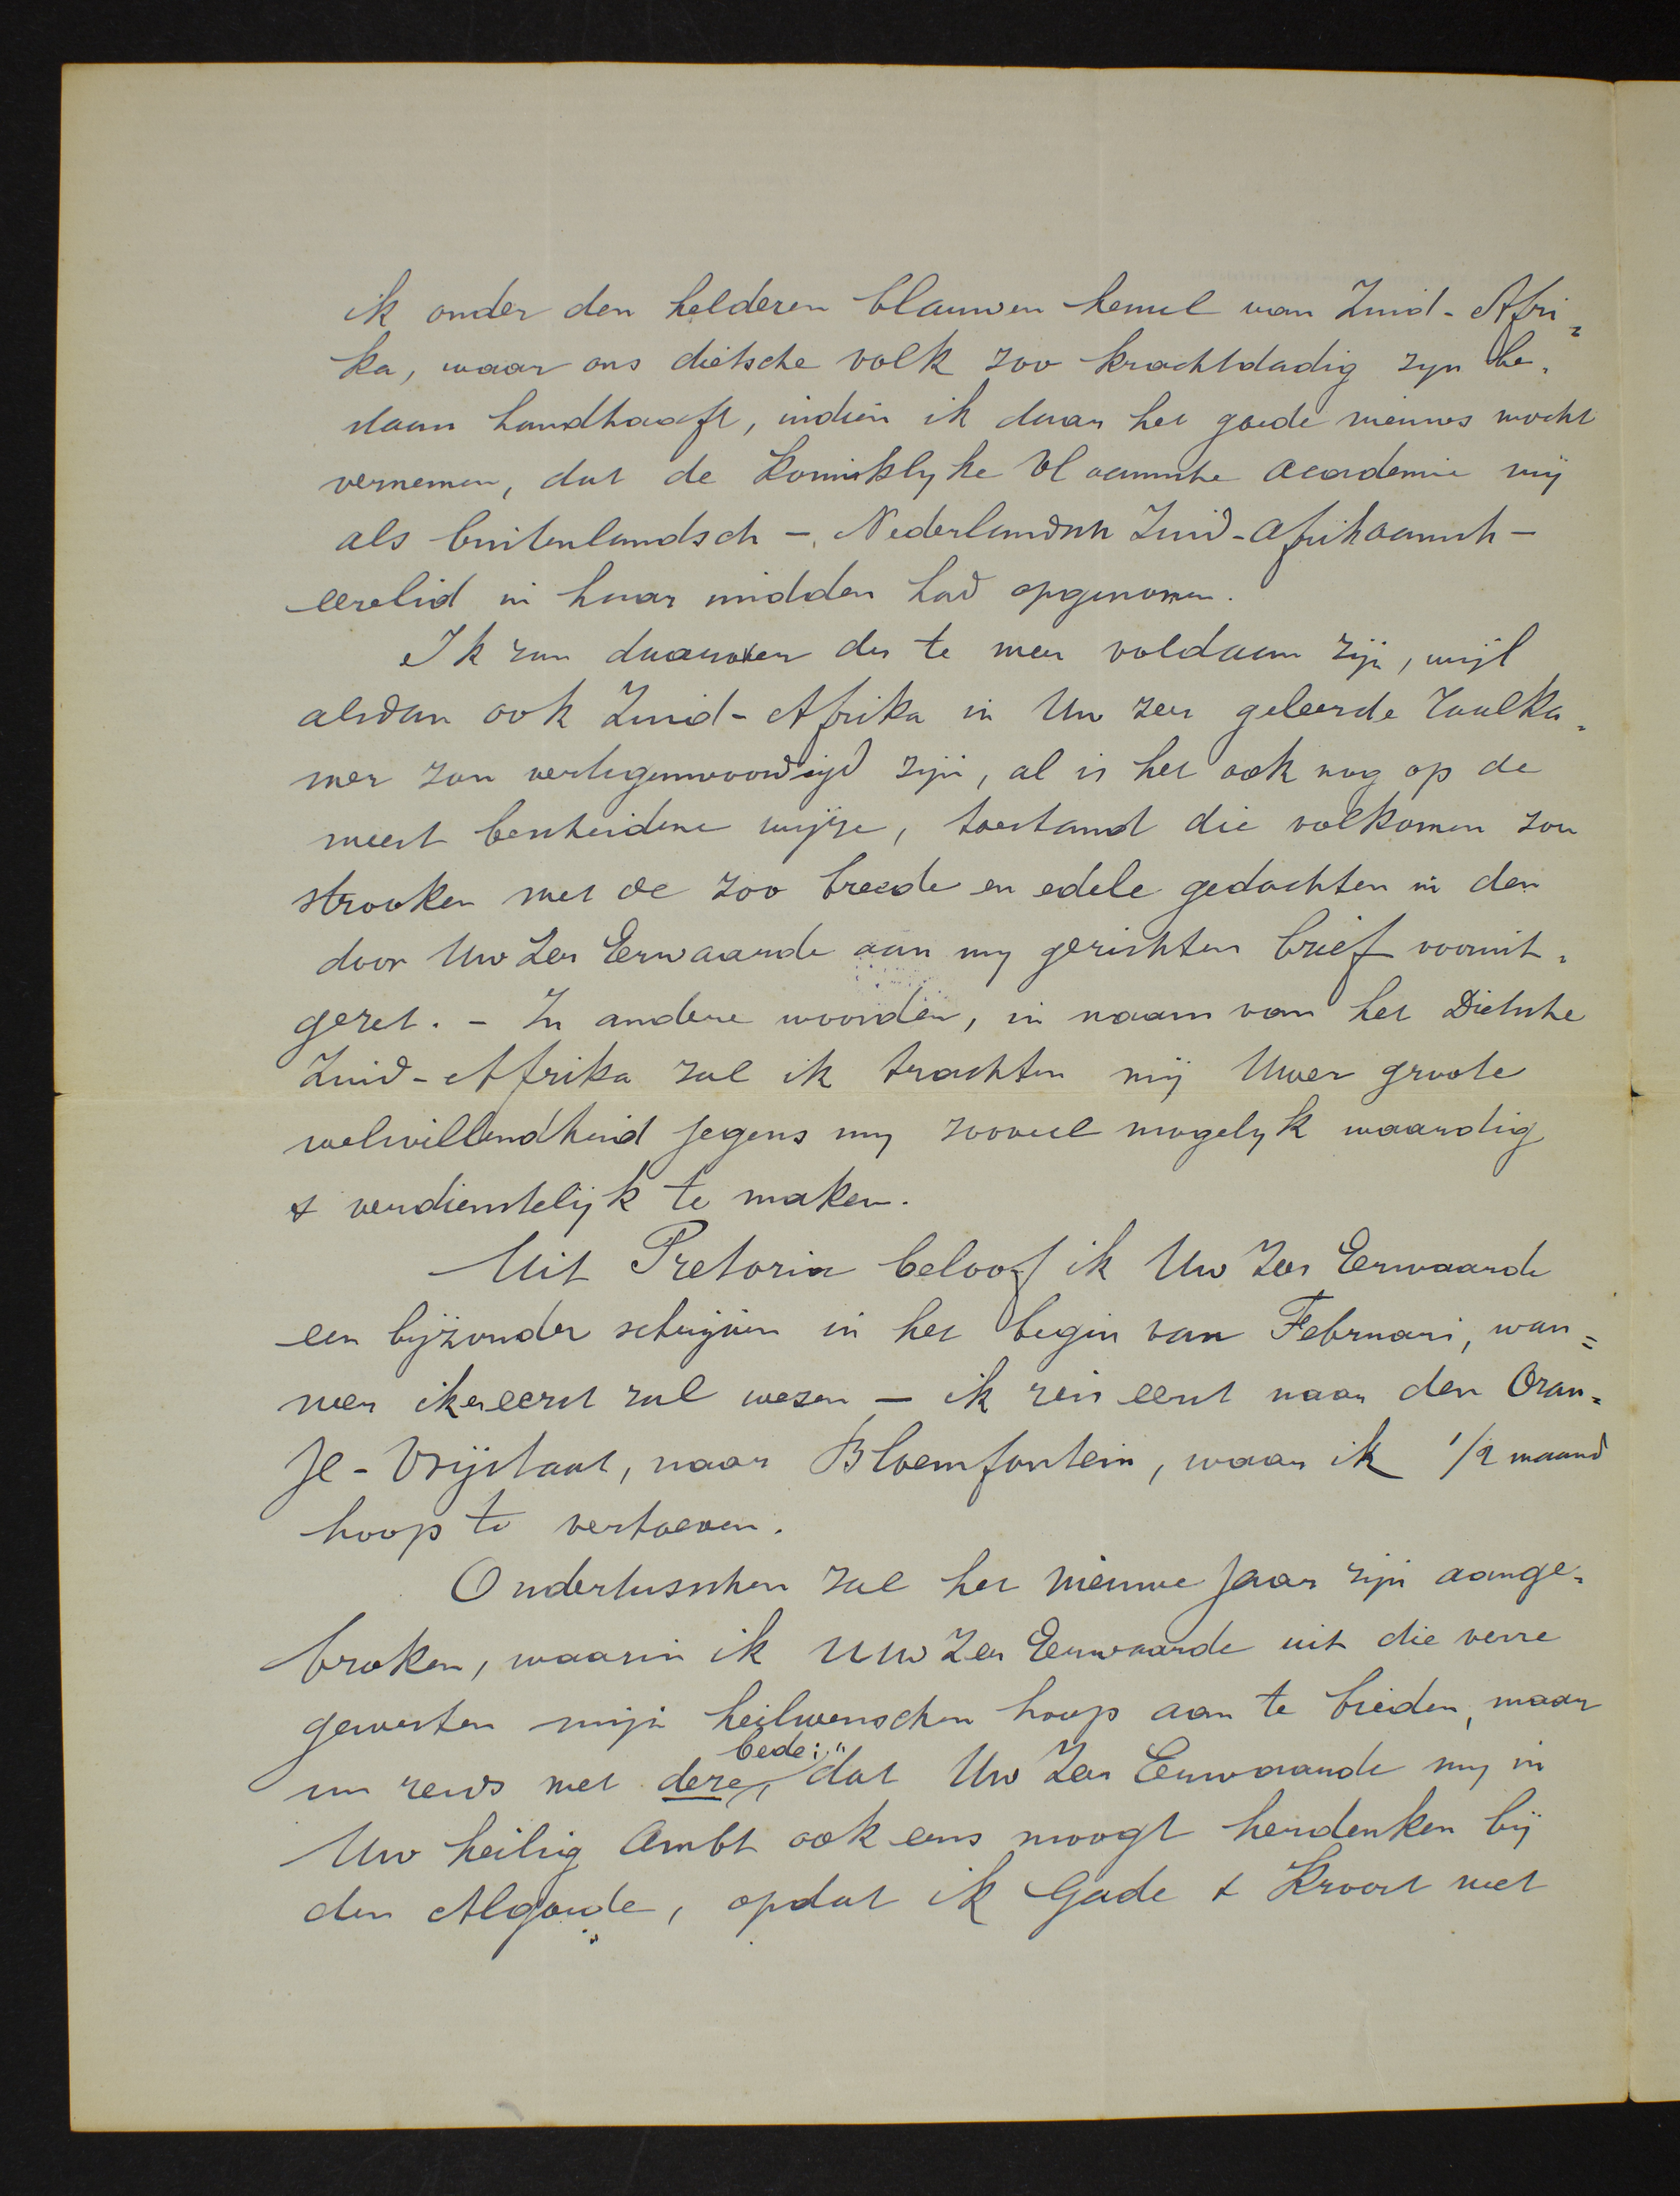 ik onder den helderen blauwen hemel van Zuid-Afri=
ka, waar ons dietsche volk zoo krachtdadig zyn be=
staan handhaaft, indien ik daar het goede nieuws mocht
vernemen, dat de Koninklyke Vlaamsche Academie mij
als buitenlandsch - Nederlandsch Zuid-Afrikaansch -
eerelid in haar midden had opgenomen.
Ik zou daarover des te meer voldaan zijn, wijl
alsdan ook Zuid-Afrika in Uw zeer geleerde Taalka=
mer zou vertegenwoordigd zijn, al is het ook nog op de
meest bescheidene wijze, toestand die volkomen zou
strooken met de zoo breede en edele gedachten in den
door Uw Zeer Eerwaarde aan my gerichten brief vooruit=
gezet. - In andere woorden, in naam van het Dietsche
Zuid-Afrika zal ik trachten mij Uwer groote
welwillendheid jegens my zooveel mogelyk waardig
& verdienstelijk te maken.
Uit Pretoria beloof ik Uw Zeer Eerwaarde
een byzonder schrijven in het begin van Februari, wan=
neer ik er eerst zal wezen - ik reis eerst naar den Oran=
je-Vrijstaat, naar Bloemfontein, waar ik 1/2 maand
hoop te vertoeven.
Ondertusschen zal het nieuwe jaar zijn aange=
broken, waarin ik Uw Zeer Eerwaarde uit die verre
gewesten mijn heilwenschen hoop aan te bieden, maar
nu reeds met deze bede: "dat Uw Zeer Eerwaarde my in
Uw heilig Ambt ook eens moogt herdenken bij
den Algoede, opdat ik Gade & Kroost met